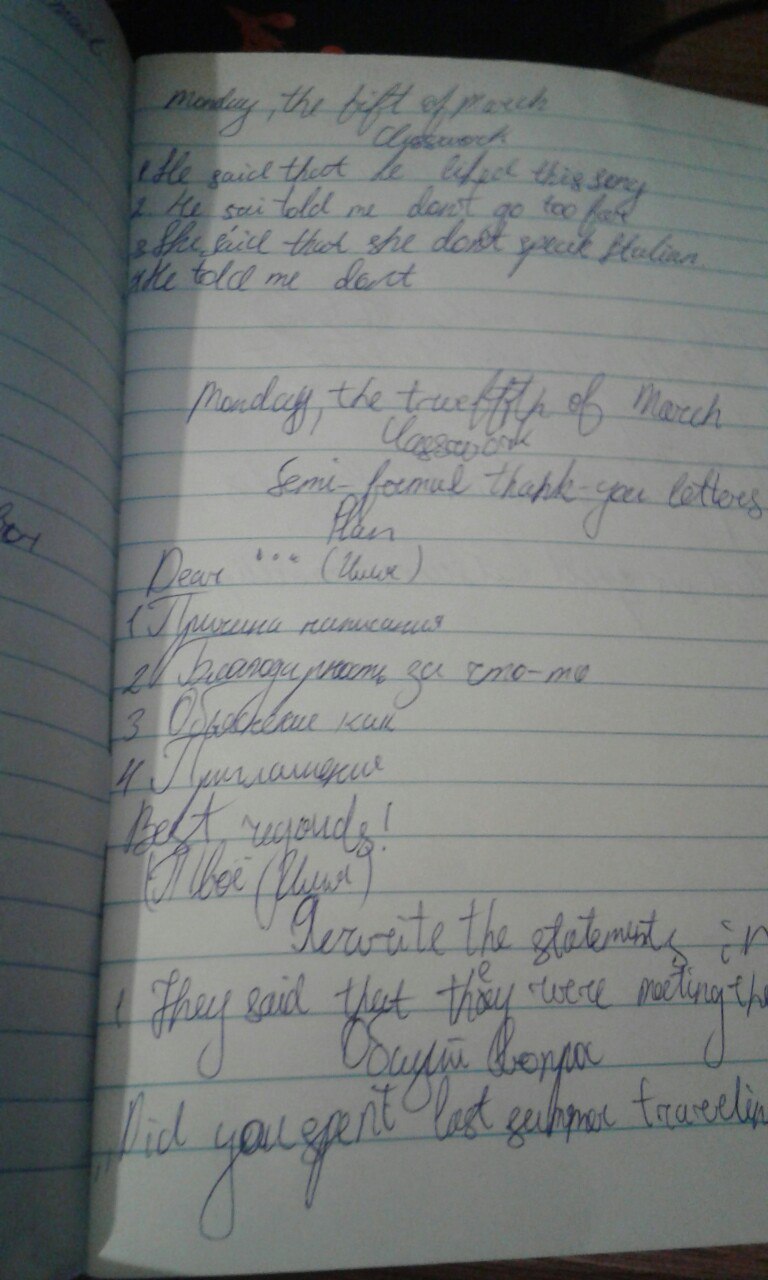 Monday, the fift of March
Classwork
1. He said that he liked this song
2. He sai told me don't go too far
3 She said that she don't speak Italian.
4 He told me dont
Monday, the twelfth of March
Classwork
Semi-formal thank-you letters
Plan
Dear ... (Имя)
1 Причина написания
2 Благодарность за что-то
3 как
4 Приглашения
Best regards!
(Твоё (Имя)
Rewrite the statements in
1 They said that they were meeting the
Общий вопрос
Did you spent last summer travelin